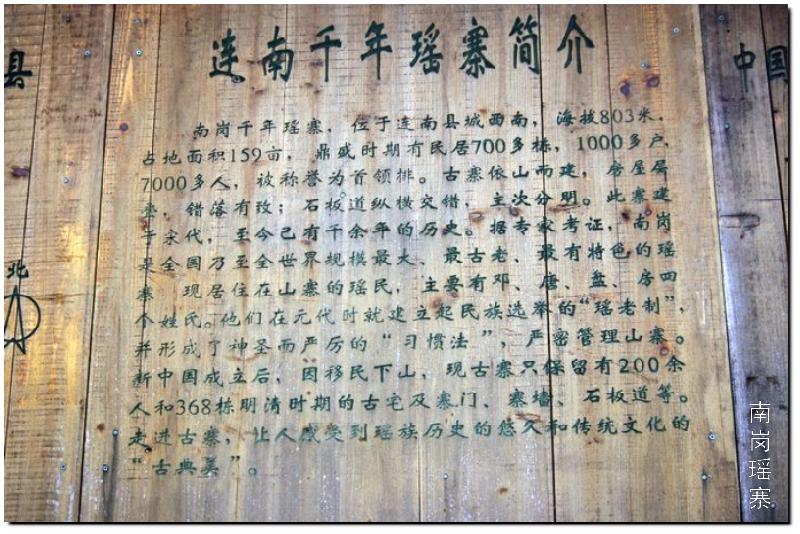 连南千年瑶寨简介
南岗千年瑶寨，位于连南县城西南，海拔803米，
占地面积159亩，鼎盛时期有民居700多栋，1000多户，
7000多人，被称誉为首领排。古寨依山而建，房屋层
叠，错落有致；石板道纵横交错，主次分明。此寨建
于宋代，至今已有千余年的历史。据专家考证，南岗
是全国乃至全世界规模最大、最古老、最有特色的瑶
寨，现居住在山寨的瑶民，主要有邓、唐、盘、房四
个姓氏。他们在元代时就建立起民族选举的“瑶老制”，
并形成了神圣而严厉的“习惯法”，严密管理山寨。
新中国成立后，因移民下山，现古寨只保留有200余
人和368栋明清时期的古宅及寨门、寨墙、石板道等。
走进古寨，让人感受到瑶族历史的悠久和传统文化的
“古典美”。
县
北
中国
南岗瑶寨